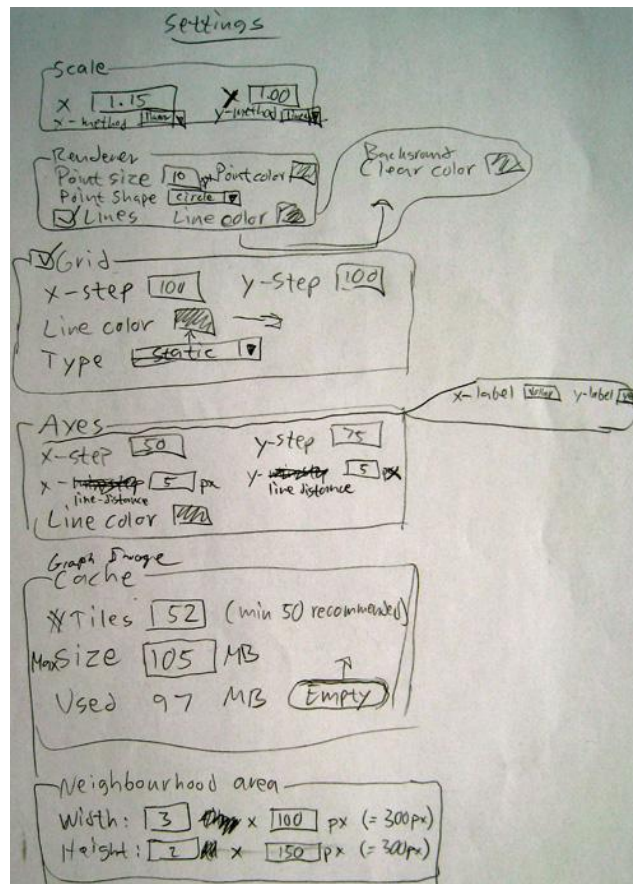 Settings
Scale
X 1.15 Y 1.00
x-method linear y-method linear
Renderer
Point size 10 px Point color
Point shape circle
Lines Line color
Background
Clear color
Grid
x-step 100 y-step 100
Line color
Type static
x-label y-label
Axes
x-step 50 y-step 75
x- 5 px y- 5 px
line-distance line distance
Line color
Graph Image
Cache
# Tiles 52 (min 50 recommended)
Max Size 105 MB
Used 97 MB Empty
Neighbourhood area
Width: 3 x 100 px (= 300px)
Height: 2 x 150 px (= 300px)